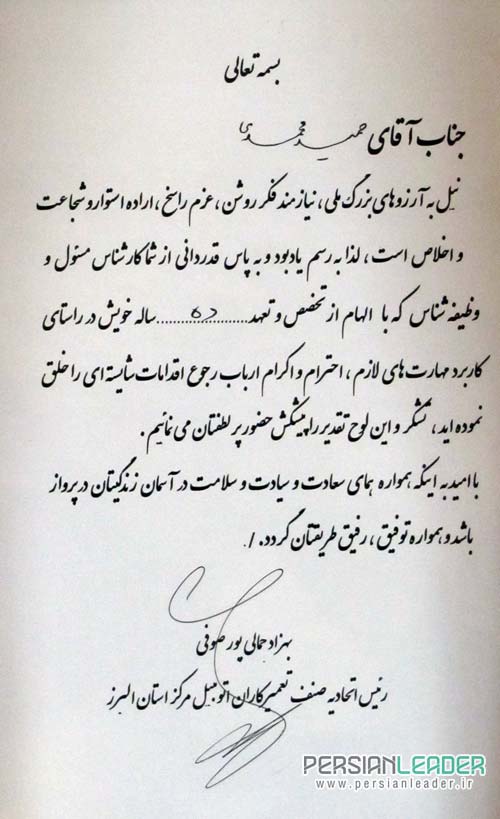 بسمه تعالی
جناب آقای حمید محمدی
نیل به آرزوهای بزرگ ملی ، نیازمند فکر روشن ، عزم راسخ ، اراده استوار و شجاعت
و اخلاص است ، لذا به رسم یادبود و به پاس قدردانی از شما کارشناس مسئول و
وظیفه شناس که با الهام از تخصص و تعهد .................... ساله خویش در راستای
کاربرد مهارت های لازم ، احترام و اکرام ارباب رجوع اقدامات شایسته ای را خلق
نموده اید ، تشکر و این لوح تقدیر را پیشکش حضور پر لطفتان می نمائیم .
با امید به اینکه همواره همای سعادت و سیادت و سلامت در آسمان زندگیتان در پرواز
باشد و همواره توفیق ، رفیق طریقتان گردد . /
بهزاد جمالی پور صوفی
رئیس اتحادیه صنف تعمیرکاران اتومبیل مرکز استان البرز
PERSIANLEADER
www.persianleader.ir